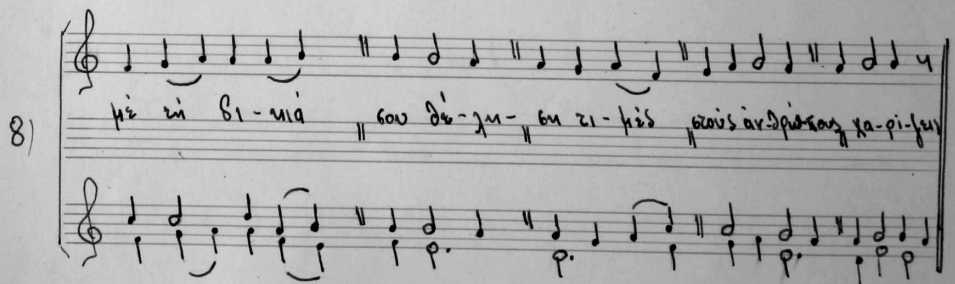 8) μὲ τὴ δι-κιά || σου θέ-λη- || ση τι-μὲς || στοὺς ἀν-θρώ-πους || χα-ρί-ζεις